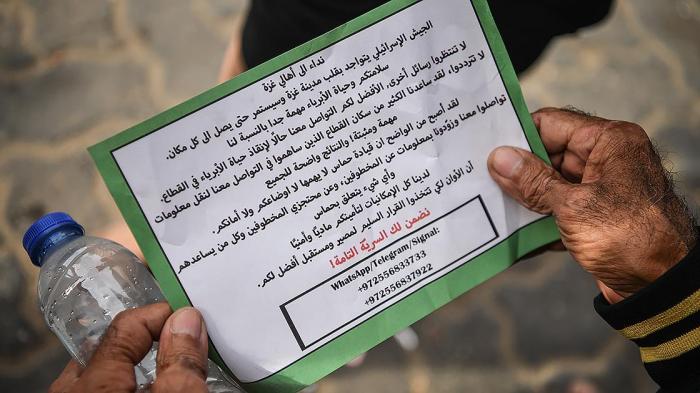 نداء الى أهالي غزة
الجيش الإسرائيلي يتواجد بقلب مدينة غزة وسيستمر حتى يصل الى كل مكان.
سلامتكم وحياة الأبرياء مهمة جدا بالنسبة لنا
لا تنتظروا رسائل أخرى، الأفضل لكم التواصل معنا حالًا لإنقاذ حياة الأبرياء في القطاع.
لا تترددوا، لقد ساعدنا الكثير من سكان القطاع الذين ساهموا في التواصل معنا لنقل معلومات
مهمة ومثبتة والنتائج واضحة للجميع
لقد أصبح من الواضح ان قيادة حماس لا يهمها لا اوضاعكم ولا أمالكم.
تواصلوا معنا وزودونا بمعلومات عن المخطوفين، وعن محتجزي المخطوفين وكل من يساعدهم
وأي شيء يتعلق بحماس
لدينا كل الإمكانيات لتأمينكم ماديًا وأمنيًا
أن الأوان لكي تتخذوا القرار السليم لمصير ومستقبل أفضل لكم.
نضمن لك السرية التامة!
WhatsApp/Telegram/Signal:
+972556833733
+972556837922